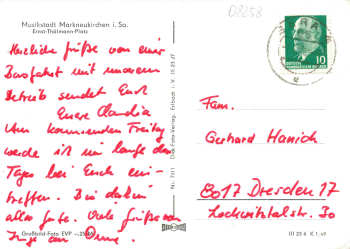 Musikstadt Markneukirchen i. Sa.
Ernst-Thälmann-Platz
08258
Herzliche Grüße von einer
Busfahrt mit unserem
Betrieb sendet Euch
Eure Claudia
Am kommenden Freitag
werde ich im Laufe des
Tages bei Euch ein-
treffen. Bis dahin
alles Gute. Viele Grüße von
Großbild-Foto EVP
DEUTSCHE
DEMOKRATISCHE REPUBLIK
10
Fam.
Gerhard Hanich
8017 Dresden 17
Lockwitztalstr. 30
III 23 6 K 1/69